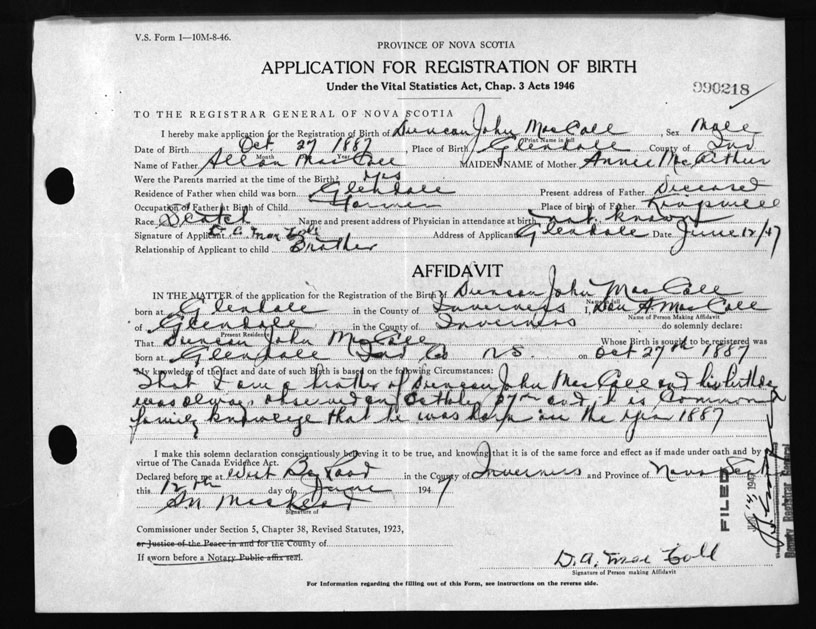 V.S. Form 1—10M-8-46.
PROVINCE OF NOVA SCOTIA
APPLICATION FOR REGISTRATION OF BIRTH
Under the Vital Statistics Act, Chap. 3 Acts 1946
990218
TO THE REGISTRAR GENERAL OF NOVA SCOTIA
I hereby make application for the Registration of Birth of Duncan John MacColl, Sex Male
Print Name in full
Date of Birth Oct 27 1887, Place of Birth Glendale County of Inv
Month Year
Name of Father Allan MacColl MAIDEN NAME of Mother Annie McArthur
Were the Parents married at the time of the Birth? Yes
Residence of Father when child was born Glendale Present address of Father Deceased
Occupation of Father at Birth of Child Farmer Place of birth of Father Kingsville
Race Scotch Name and present address of Physician in attendance at birth not known
Signature of Applicant D. A. MacColl Address of Applicant Glendale Date June 12/47
Relationship of Applicant to child Brother
AFFIDAVIT
IN THE MATTER of the application for the Registration of the Birth of Duncan John MacColl
Name in full
born at Glendale in the County of Inverness I, Dan A MacColl
Name of Person Making Affidavit
of Glendale in the County of Inverness do solemnly declare:
Present Residence
That Duncan John MacColl Whose Birth is sought to be registered was
born at Glendale Inv Co N S. on Oct 27th 1887
My knowledge of the fact and date of such Birth is based on the following Circumstances:
That I am a brother of Duncan John MacColl and his birthday
was always observed on October 27th and it is common
family knowlege that he was born in the year 1887
I make this solemn declaration conscientiously believing it to be true, and knowing that it is of the same force and effect as if made under oath and by
virtue of The Canada Evidence Act.
Declared before me at West Bay Road in the County of Inverness and Province of Nova Scotia
this 12th day of June 1947
Signature of
Commissioner under Section 5, Chapter 38, Revised Statutes, 1923,
or Justice of the Peace in and for the County of
If sworn before a Notary Public affix seal.
D. A. MacColl
Signature of Person making Affidavit
For Information regarding the filling out of this Form, see instructions on the reverse side.
FILED
Deputy Registrar General